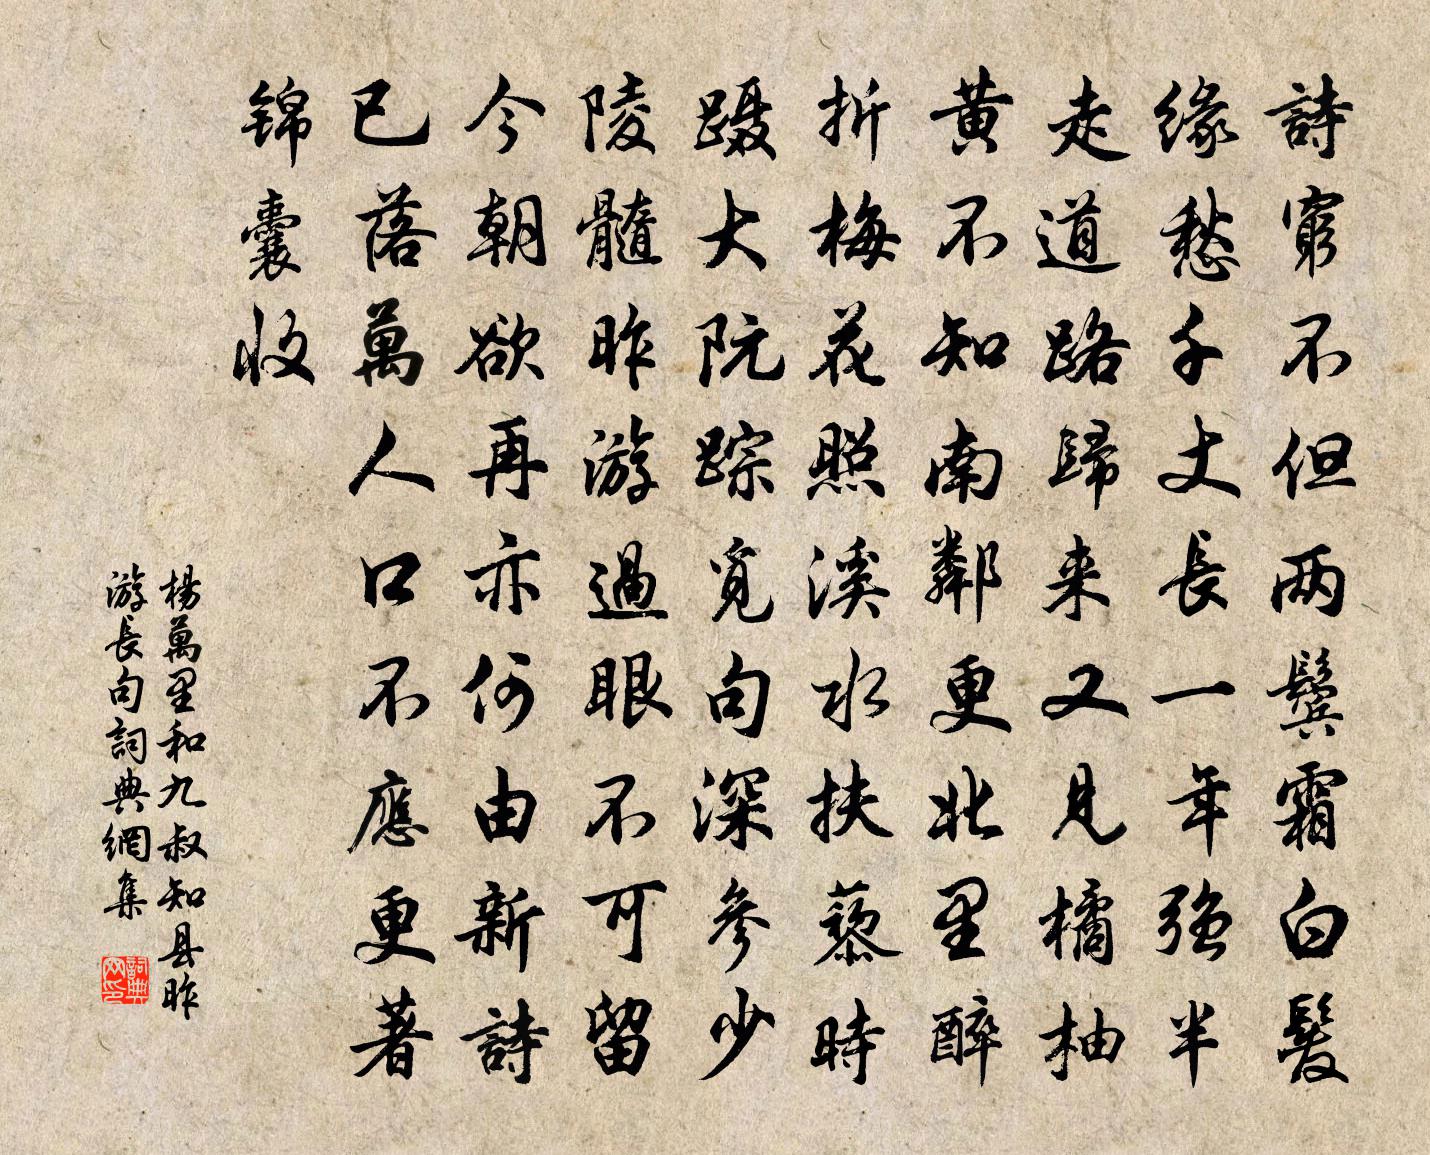 詩窮不但两鬓霜白髮
缘愁千丈長一年强半
走道路歸来又見橘柚
黄不知南鄰更北里醉
折梅花照溪水扶藜時
蹑大阮踪觅句深參少
陵髓昨游過眼不可留
今朝欲再亦何由新詩
已落萬人口不應更著
锦囊收
楊萬里和九叔知县昨
游長句詞典網集
詞典
网印